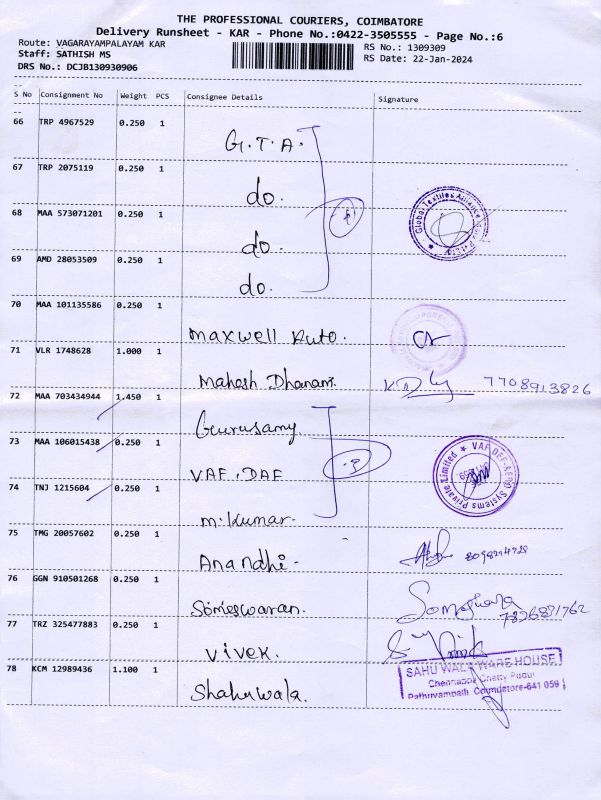 THE PROFESSIONAL COURIERS, COIMBATORE
Delivery Runsheet - KAR - Phone No.:0422-3505555 - Page No.:6
Route: VAGARAYAMPALAYAM KAR
RS No.: 1309309
Staff: SATHISH MS
RS Date: 22-Jan-2024
DRS No.: DCJB130930906
S No Consignment No Weight PCS Consignee Details Signature
66 TRP 4967529 0.250 1 G.T.A.
67 TRP 2075119 0.250 1 do.
68 MAA 573071201 0.250 1 do.
69 AMD 28053509 0.250 1 do.
Global Textiles Alliance
70 MAA 101135586 0.250 1 Maxwell Auto.
71 VLR 1748628 1.000 1 Mahesh Dhanam. 7708913826
72 MAA 703434944 1.450 1 Gurusamy
73 MAA 106015438 0.250 1 VAF. DAF
VAF DEF-AERO Systems Private Limited
74 TNJ 1215604 0.250 1 M. Kumar
75 TMG 20057602 0.250 1 Anandhi
76 GGN 910501268 0.250 1 Someswaran.
77 TRZ 325477883 0.250 1 Vivek.
78 KCM 12989436 1.100 1 Shahuwala.
SAHU WALA WARE HOUSE
Chennappa Chetty Pudur
Pathuvampalli, Coimbatore-641 059